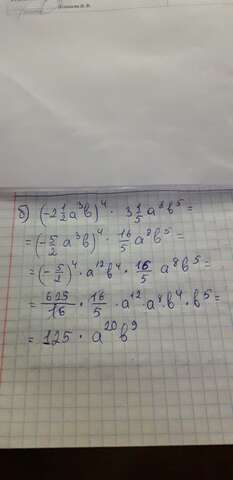 б) (-2 1/2 a³b)⁴ · 3 1/5 a⁸b⁵ =
= (-5/2 a³b)⁴ · 16/5 a⁸b⁵ =
= (-5/2)⁴ · a¹²b⁴ · 16/5 a⁸b⁵ =
= 625/16 · 16/5 · a¹² · a⁸ · b⁴ · b⁵ =
= 125 · a²⁰b⁹